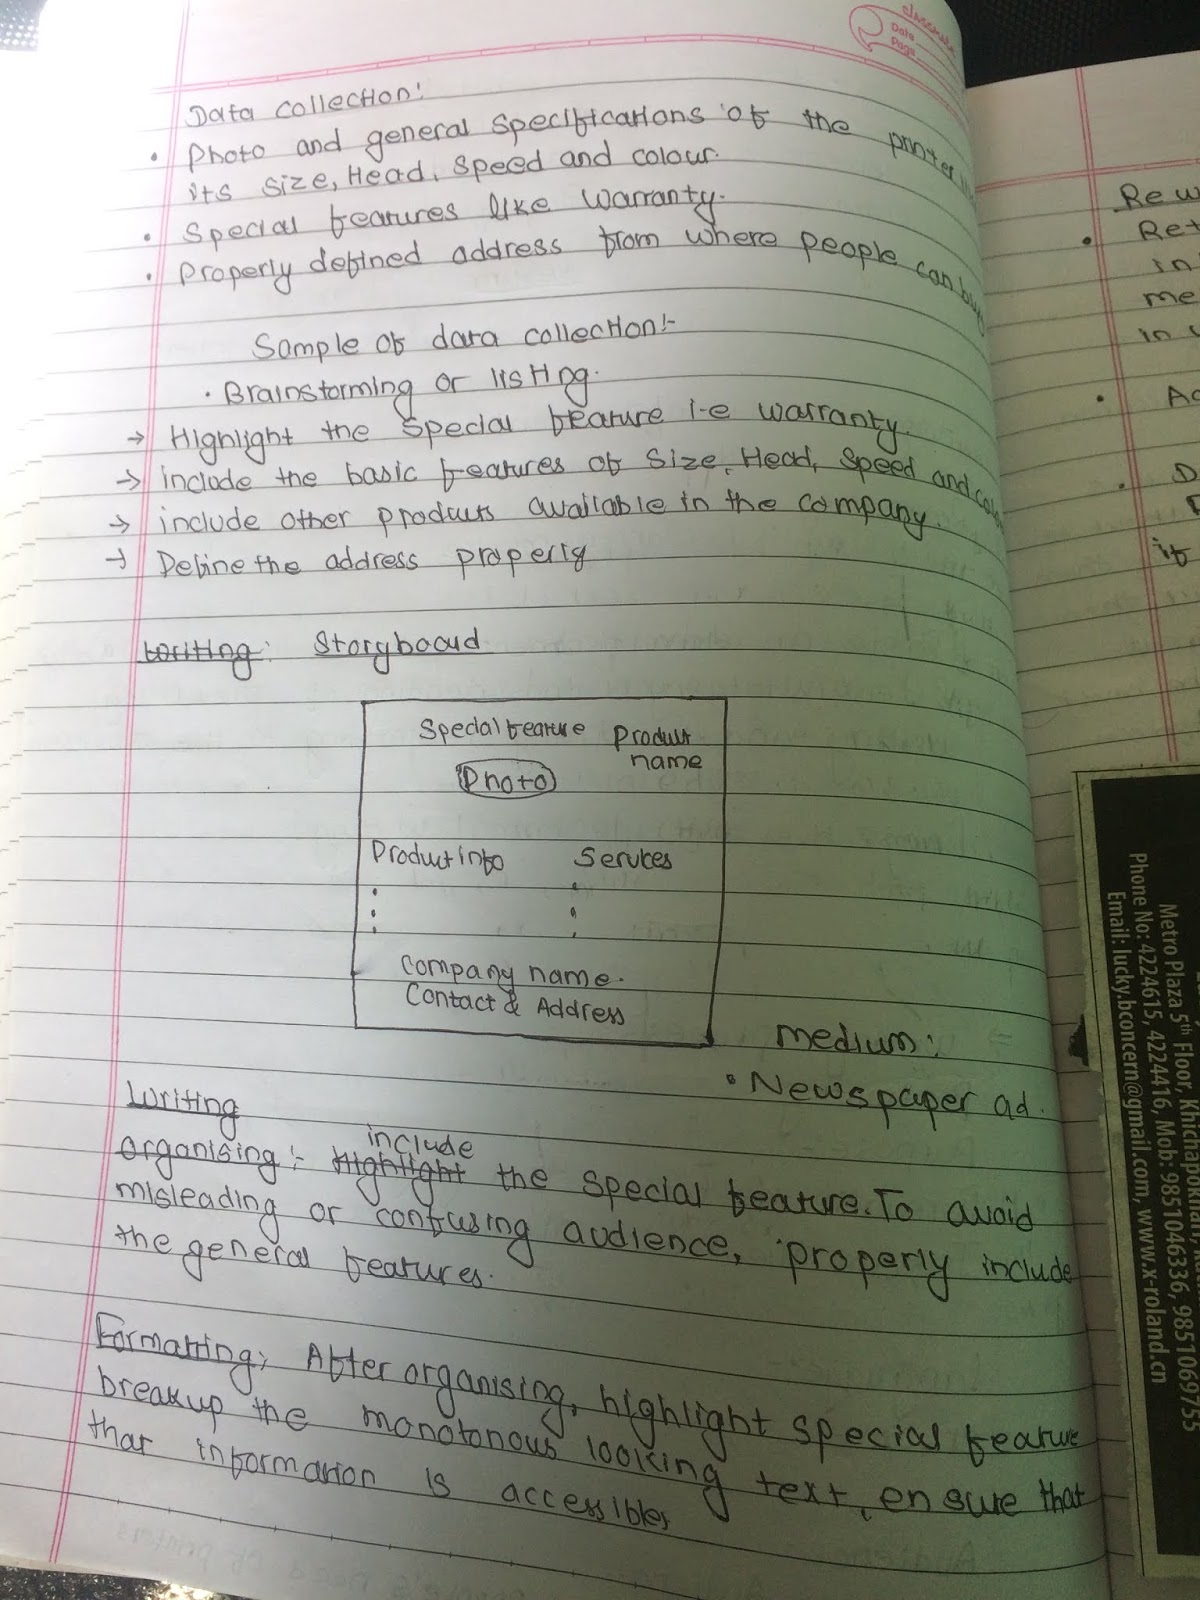 classmate
Date
Page
Data collection:
• Photo and general specifications of the printer
its size, Head, Speed and colour.
• Special features like warranty.
• Properly defined address from where people can buy
Sample of data collection:-
• Brainstorming or listing.
→ Highlight the special feature i.e warranty.
→ include the basic features of size, Head, speed and colour
→ include other products available in the company.
→ Define the address properly
Writing: Storyboard
Special feature Product
name
Photo
Product info Services
Company name.
Contact & Address
medium:
• Newspaper ad.
Writing
include
organising:- Highlight the special feature. To avoid
misleading or confusing audience, properly include
the general features.
Formatting; After organising, highlight special feature
breakup the monotonous looking text, ensure that
that information is accessible,
Rew
• Ret
in
me
in
• Ac
• D
if
Metro Plaza 5th Floor,
Phone No: 4224615, 4224416, Mob: 9851046336, 9851069755
Email: lucky.bconcern@gmail.com, www.x-roland.cn